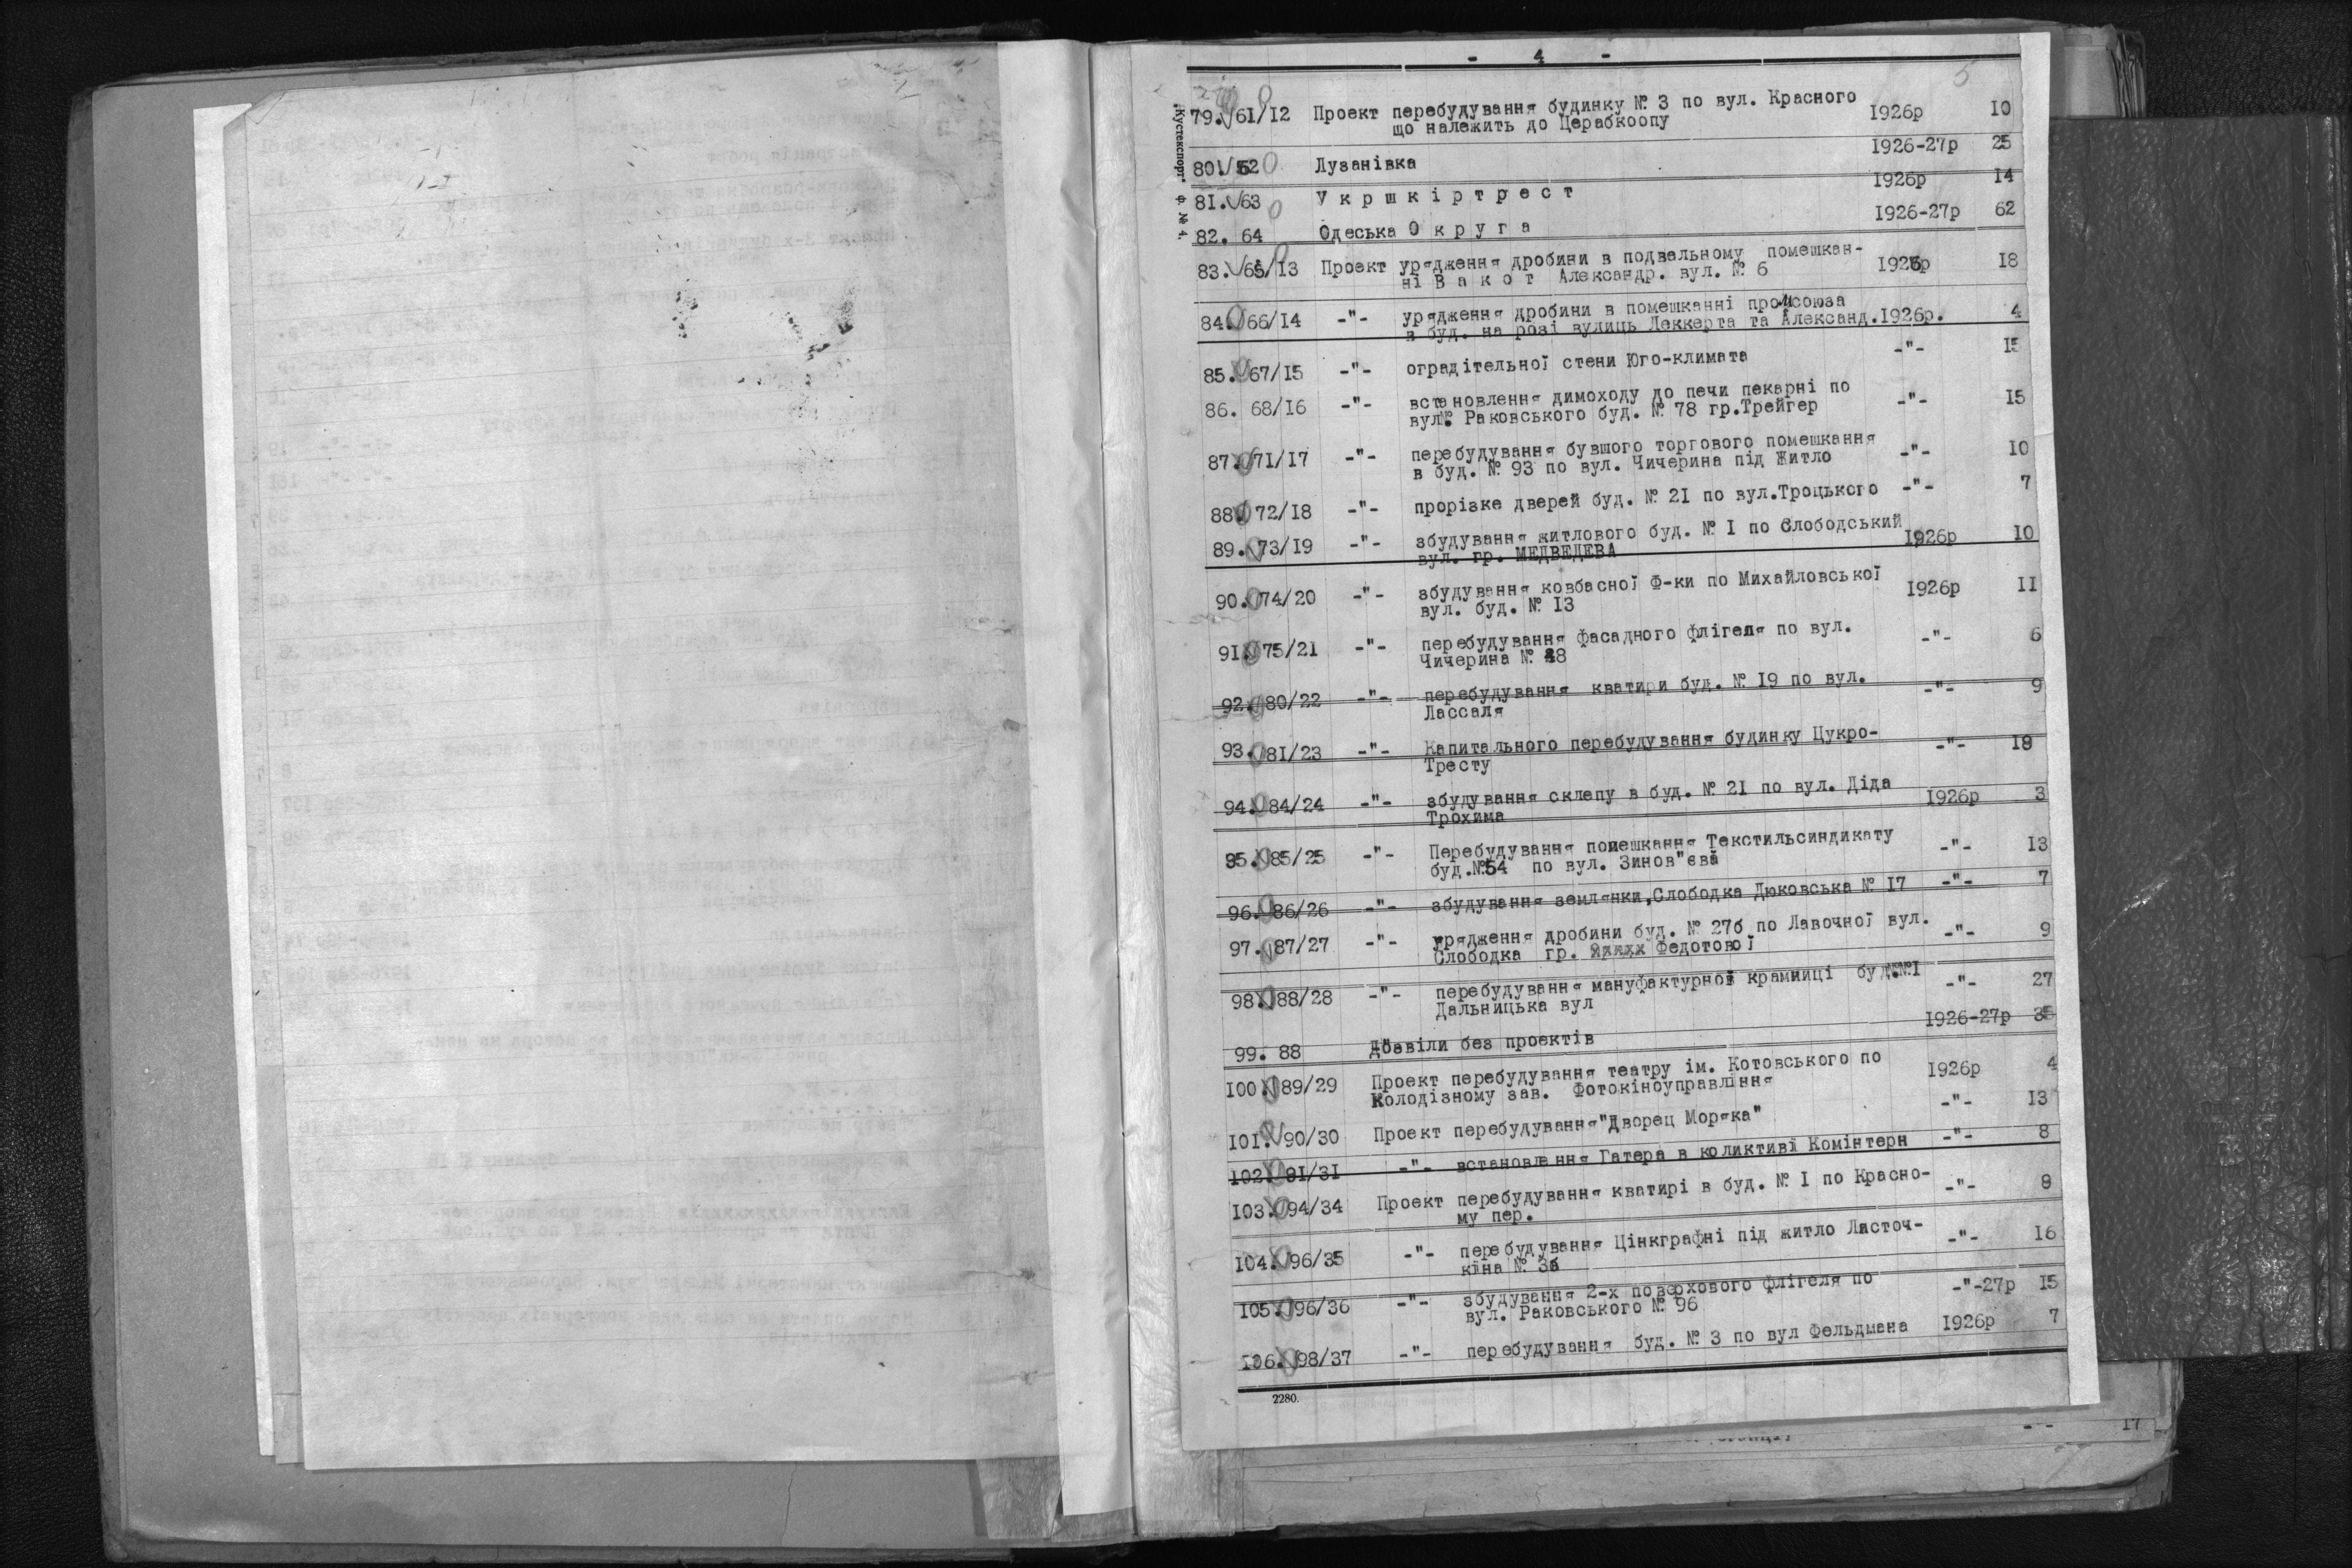 - 4 -
5
"Кустекспорт" ф. № 4.
79. 61/I2 Проект перебудування будинку № 3 по вул. Красного I926р I0
що належить до Церабкоопу
80. 62 Лузанівка I926-27р 25
81. 63 У к р ш к і р т р е с т I926р I4
82. 64 Одеська О к р у г а I926-27р 62
83. 65/I3 Проект урядження дробини в подвальному помешкан- I926р I8
ні В а к о т Александр. вул. № 6
84. 66/I4 -"- урядження дробини в помешканні промсоюза
в буд. на розі вулиць Леккерта та Александ. I926р. 4
85. 67/I5 -"- оградітельної стени Юго-климата -"- I5
86. 68/I6 -"- встановлення димоходу до печи пекарні по -"- I5
вул. Раковського буд. № 78 гр.Трейгер
87. 7I/I7 -"- перебудування бувшого торгового помешкання -"- I0
в буд. № 93 по вул. Чичерина під Житло
88. 72/I8 -"- прорізке дверей буд. № 2I по вул.Троцького -"- 7
89. 73/I9 -"- збудування житлового буд. № I по Слободський I926р I0
вул. гр. МЕДВЕДЕВА
90. 74/20 -"- збудування ковбасної Ф-ки по Михайловської I926р II
вул. буд. № I3
91. 75/2I -"- перебудування фасадного флігеля по вул. -"- 6
Чичерина № 48
92. 80/22 -"- перебудування кватири буд. № I9 по вул. -"- 9
Лассаля
93. 8I/23 -"- Капитального перебудування будинку Цукро- -"- I9
Тресту
94. 84/24 -"- збудування склепу в буд. № 2I по вул. Діда I926р 3
Трохима
95. 85/25 -"- Перебудування помешкання Текстильсиндикату -"- I3
буд.№54 по вул. Зинов"єва
96. 86/26 -"- збудування землянки,Слободка Дюковська № I7 -"- 7
97. 87/27 -"- урядження дробини буд. № 27б по Лавочної вул. -"- 9
Слободка гр. Федотової
98. 88/28 -"- перебудування мануфактурної крамниці буд.№I -"- 27
Дальницька вул
99. 88 Дозвіли без проектів I926-27р 35
I00. 89/29 Проект перебудування театру ім. Котовського по I926р 4
Колодізному зав. Фотокіноуправління
I0I. 90/30 Проект перебудування"Дворец Моряка" -"- I3
I02. 9I/3I -"- встановлення Гатера в коликтиві Комінтерн -"- 8
I03. 94/34 Проект перебудування кватирі в буд. № I по Красно- -"- 9
му пер.
I04. 96/35 -"- перебудування Цінкграфні під житло Ласточ- -"- I6
кіна № 36
I05. 96/36 -"- збудування 2-х поверхового флігеля по -"-27р I5
вул. Раковського № 96
I06. 98/37 -"- перебудування буд. № 3 по вул Фельдмана I926р 7
2280.
-"- I7